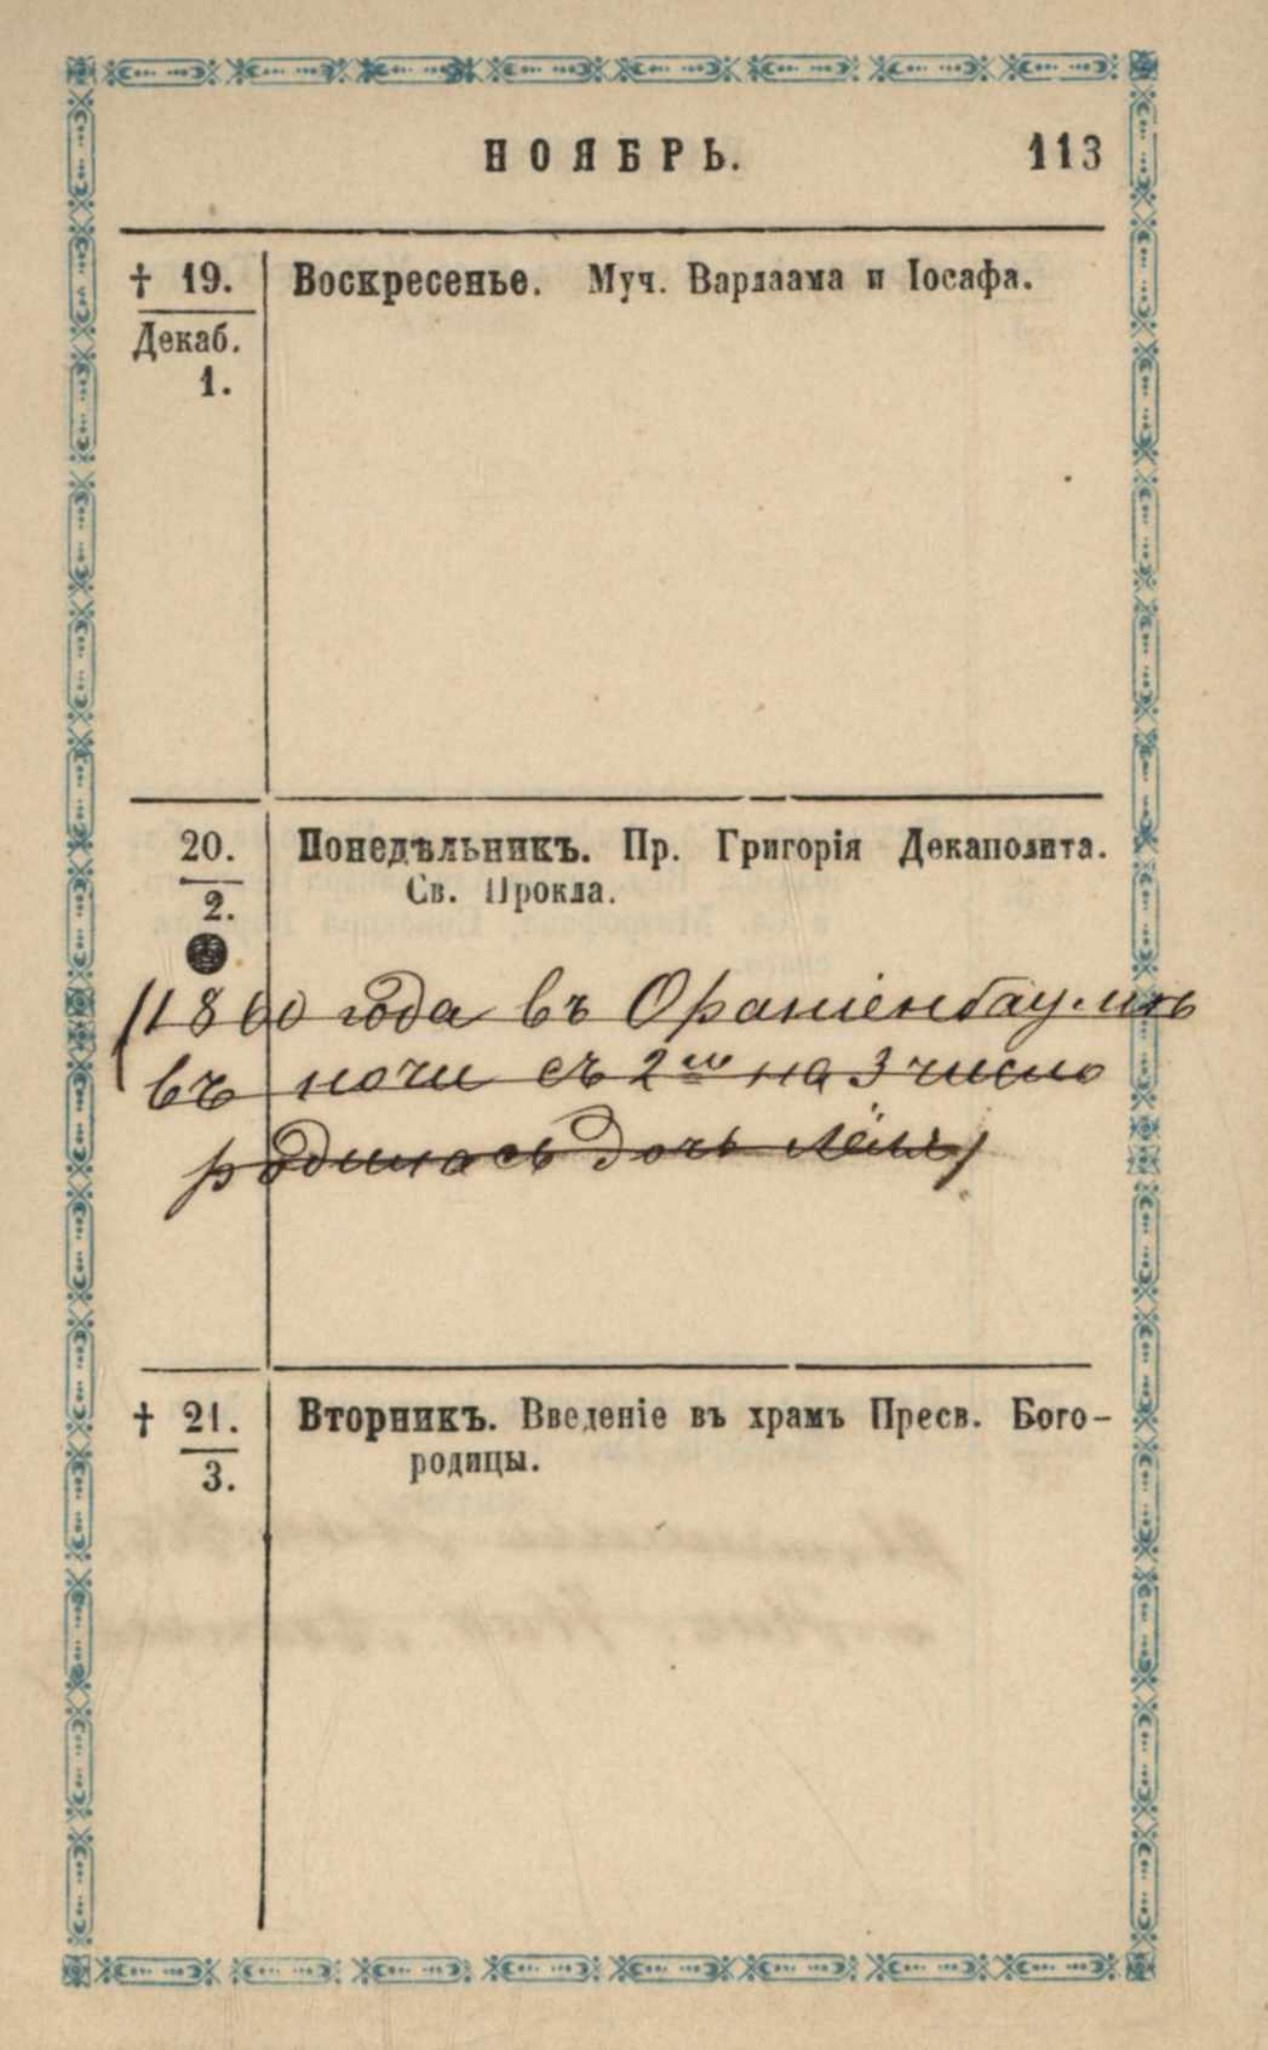 НОЯБРЬ. 113
† 19. Воскресенье. Муч. Варлаама и Іосафа.
Декаб.
1.
20. Понедѣльникъ. Пр. Григорія Декаполита.
2. Св. Прокла.
(1860 года въ Ораніенбаумѣ
въ ночи съ 2го на 3 число
родилась дочь Лёля)
† 21. Вторникъ. Введеніе въ храмъ Пресв. Бого-
3. родицы.